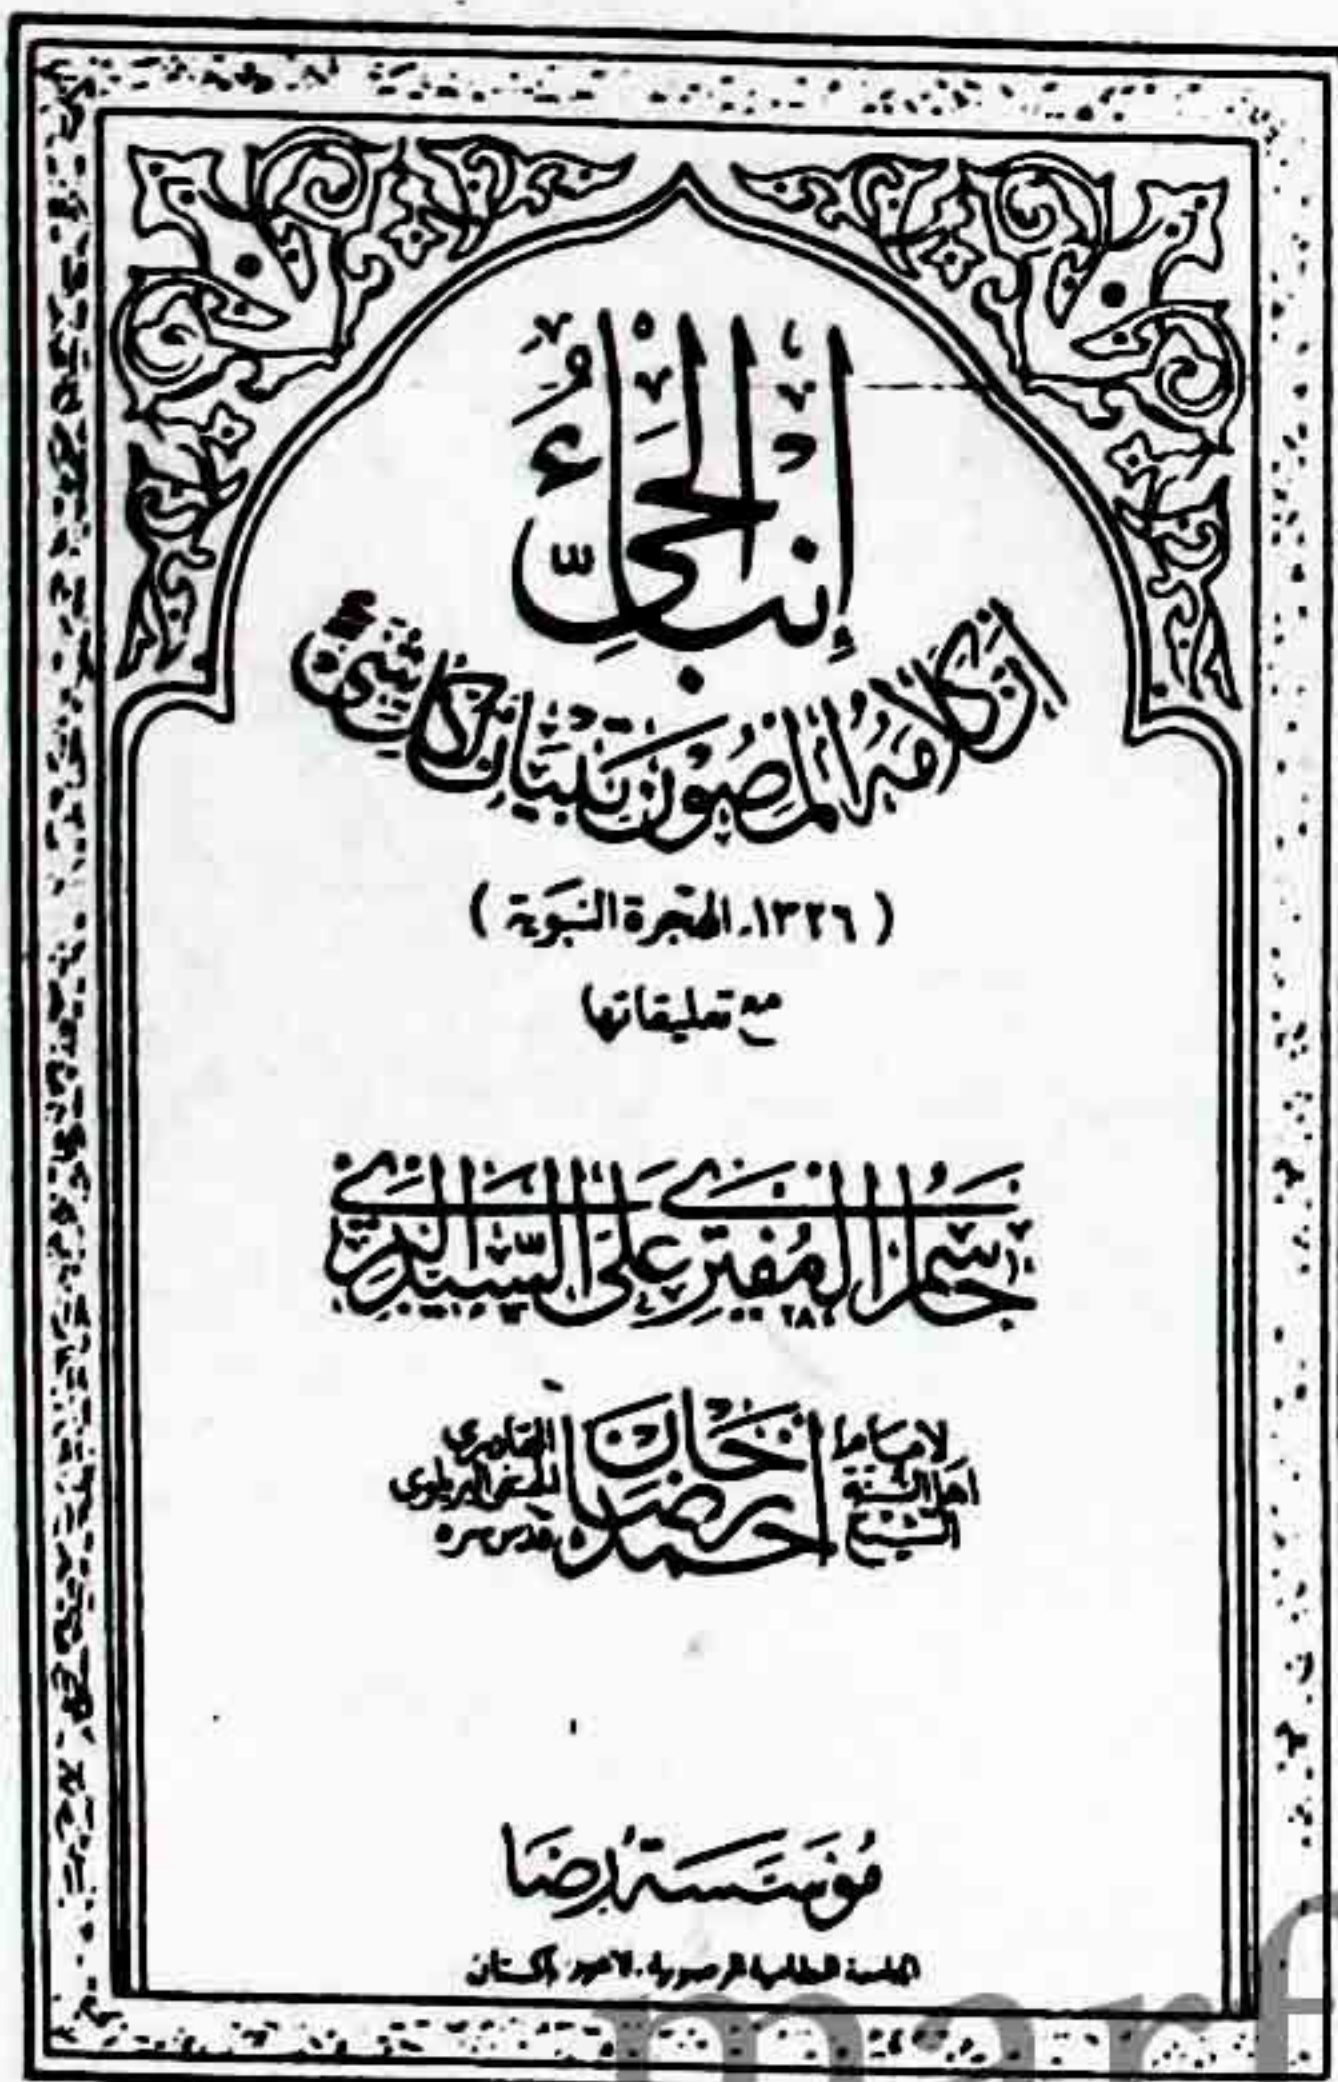 إنباء الحي
أن كلامه المصون تبيان لكل شيء
(١٣٢٦ـ الهجرة النبوية)
مع تعليقاتها
حاسم المفتري على السيد البري
١٣٢٨
لإمام أهل السنة الشيخ
أحمد رضا خان
القادري الحنفي البريلوي قدس سره
مؤسسة رضا
الجامعة النظامية الرضوية، لاهور باكستان
marf